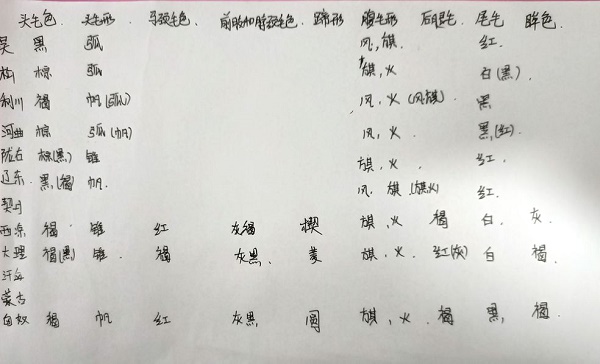 头毛色、头毛形、马颈毛色、前肢和前颈毛色、蹄形 胸毛形 后肢毛、尾毛 眸色、
吴 黑 弧 风,旗, 红.
棕 弧 旗,火 白(黑).
利川 褐 帆(弧) 风、火(风旗). 黑
河曲 棕 弧(帆) 风,火 黑(红).
陇右 棕(黑) 锥 旗,火. 红.
辽东 黑,(褐) 帆. 风. 旗(旗火) 红.
契丹
西凉 褐. 锥 红 灰褐 楔 旗,火 褐 白. 灰.
大理 褐(黑) 锥. 褐 灰黑、 菱 旗、火. 红(灰) 白 褐.
汗血
蒙古
匈奴 褐 帆 红 灰黑, 圆 旗,火. 褐 黑, 褐.